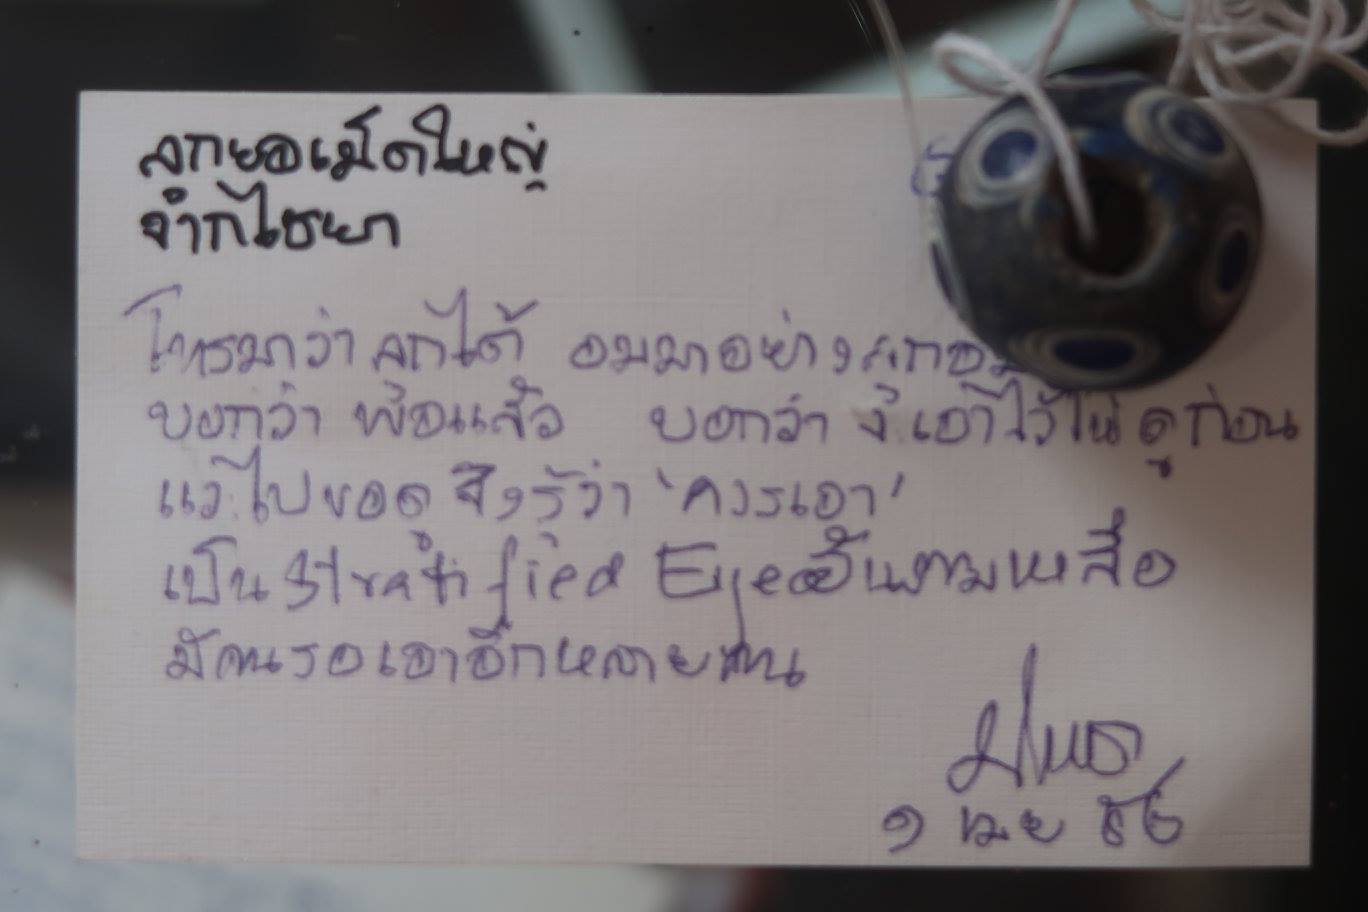 ลูกยอเม็ดใหญ่
จากไชยา
โทรมาว่า ลูกได้ อมมาอย่างลูกอม
บอกว่า พอแล้ว บอกว่า เอาไว้ให้ดูก่อน
แวะไปขอดู จึงรู้ว่า 'ควรเอา'
เป็น Stratified Eye อันงามเหลือ
มีคนรอเอาอีกหลายคน
๑ เมย ๕๒